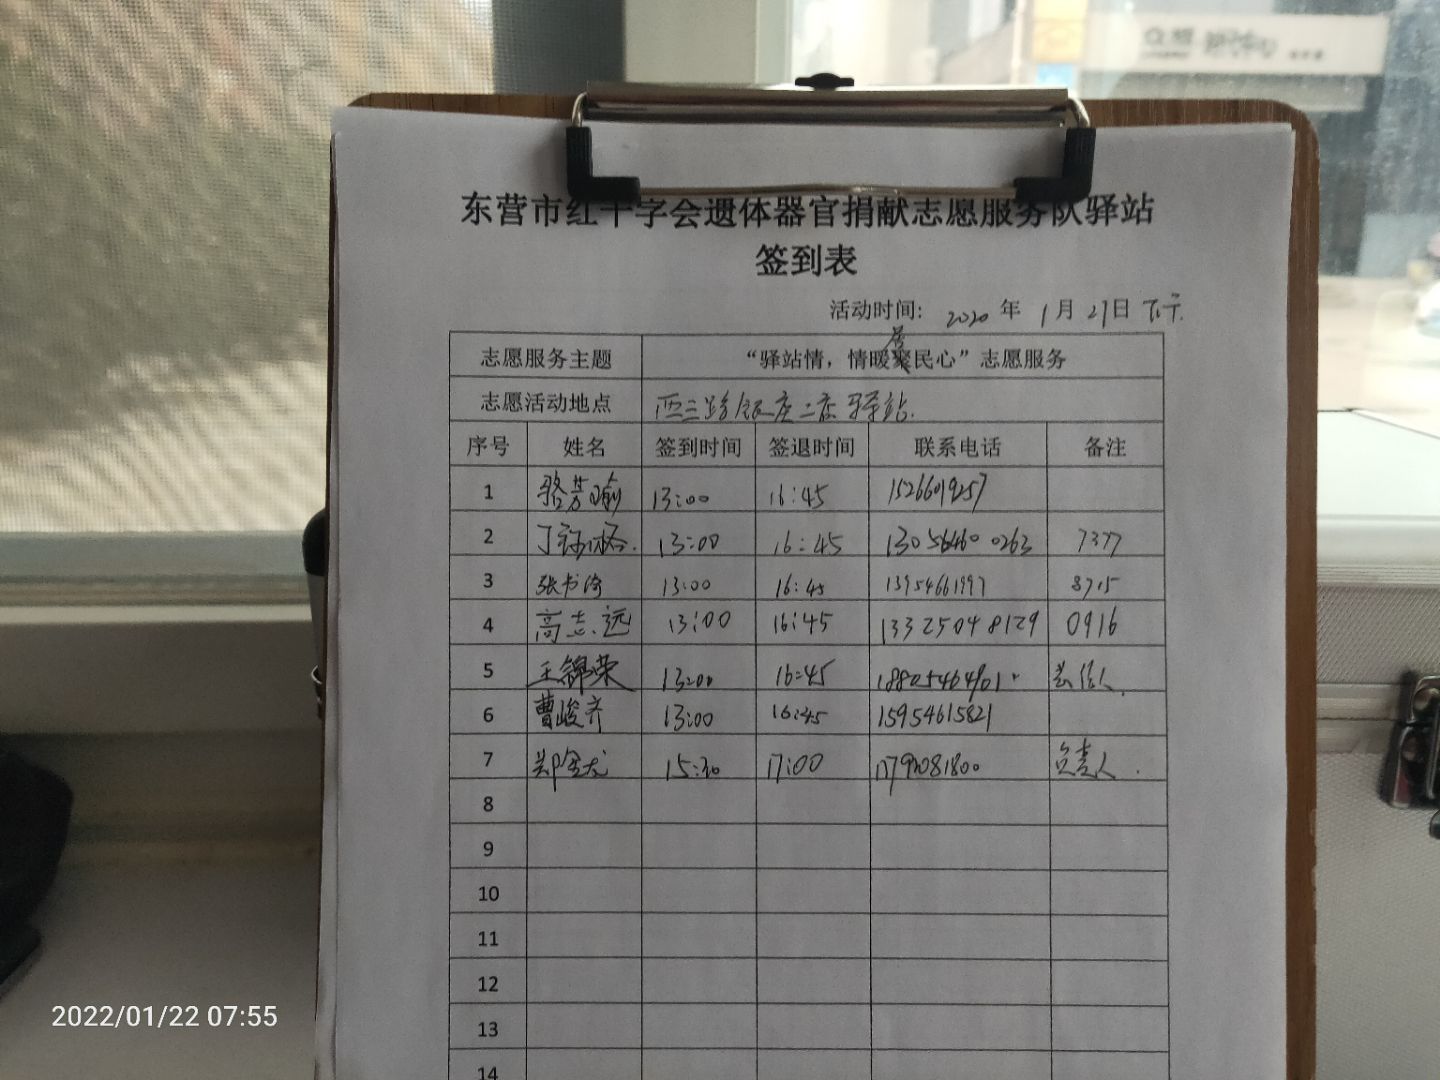 东营市红十字会遗体器官捐献志愿服务队驿站
签到表
活动时间: 2020 年 1月 21日 下午
志愿服务主题 “驿站情，情暖居民心”志愿服务
志愿活动地点 西三路银座二店驿站.
序号 姓名 签到时间 签退时间 联系电话 备注
1 骆芳瑜 13:00 16:45 1526609257
2 丁 13:00 16:45 13056460 0263 7377
3 张书 13:00 16:45 13954661997 8715
4 高志远 13:00 16:45 13325048129 0916
5 王锦荣 13:00 16:45
6 曹峻齐 13:00 16:45 15954615821
7 郑 15:30 17:00 负责人.
8
9
10
11
12
13
14
2022/01/22 07:55